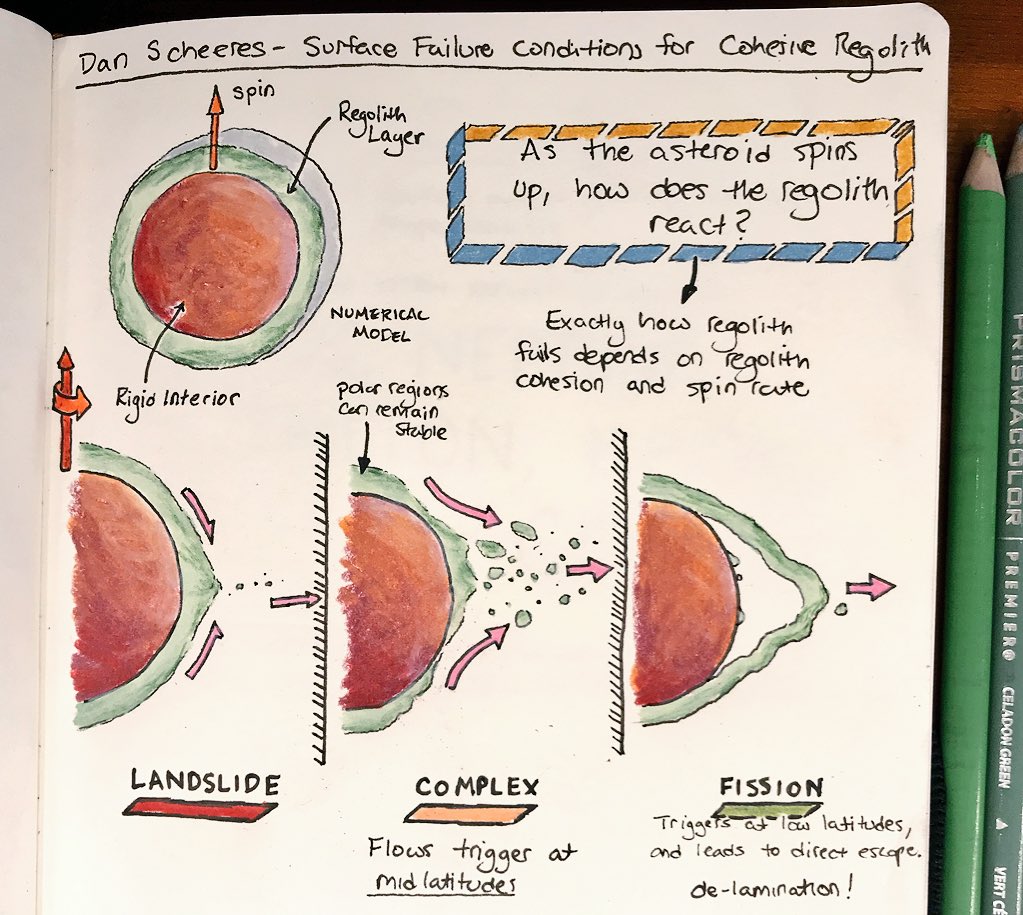 Dan Scheeres - Surface Failure Conditions for Cohesive Regolith
spin
Regolith
Layer
As the asteroid spins
up, how does the regolith
react?
NUMERICAL
MODEL
Exactly how regolith
fails depends on regolith
cohesion and spin rate
Rigid Interior
polar regions
can remain
stable
LANDSLIDE
COMPLEX
Flows trigger at
mid latitudes
FISSION
Triggers at low latitudes,
and leads to direct escape.
de-lamination!
PRISMACOLOR | PREMIER® CELADON GREEN ▲ VERT CÉ